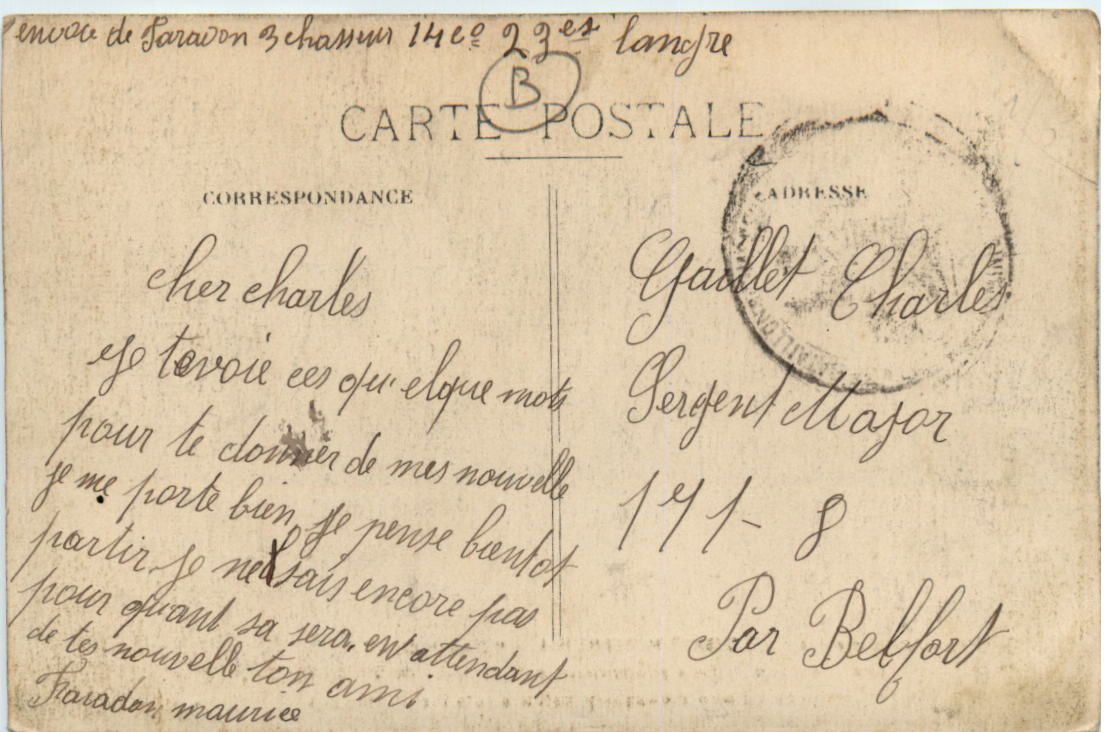 envoie de Faradon 3 chasseur 14 eo 23 es langre
B
CARTE POSTALE
CORRESPONDANCE
cher charles
Je tevoie ces qu'elque mots
pour te donner de mes nouvelle
je me porte bien, je pense bientot
partir je ne sais encore pas
pour quant sa sera, en attendant
de tes nouvelle ton ami
Faradon maurice
ADRESSE
Gaillet Charles
Sergent Major
171 - 8
Par Belfort